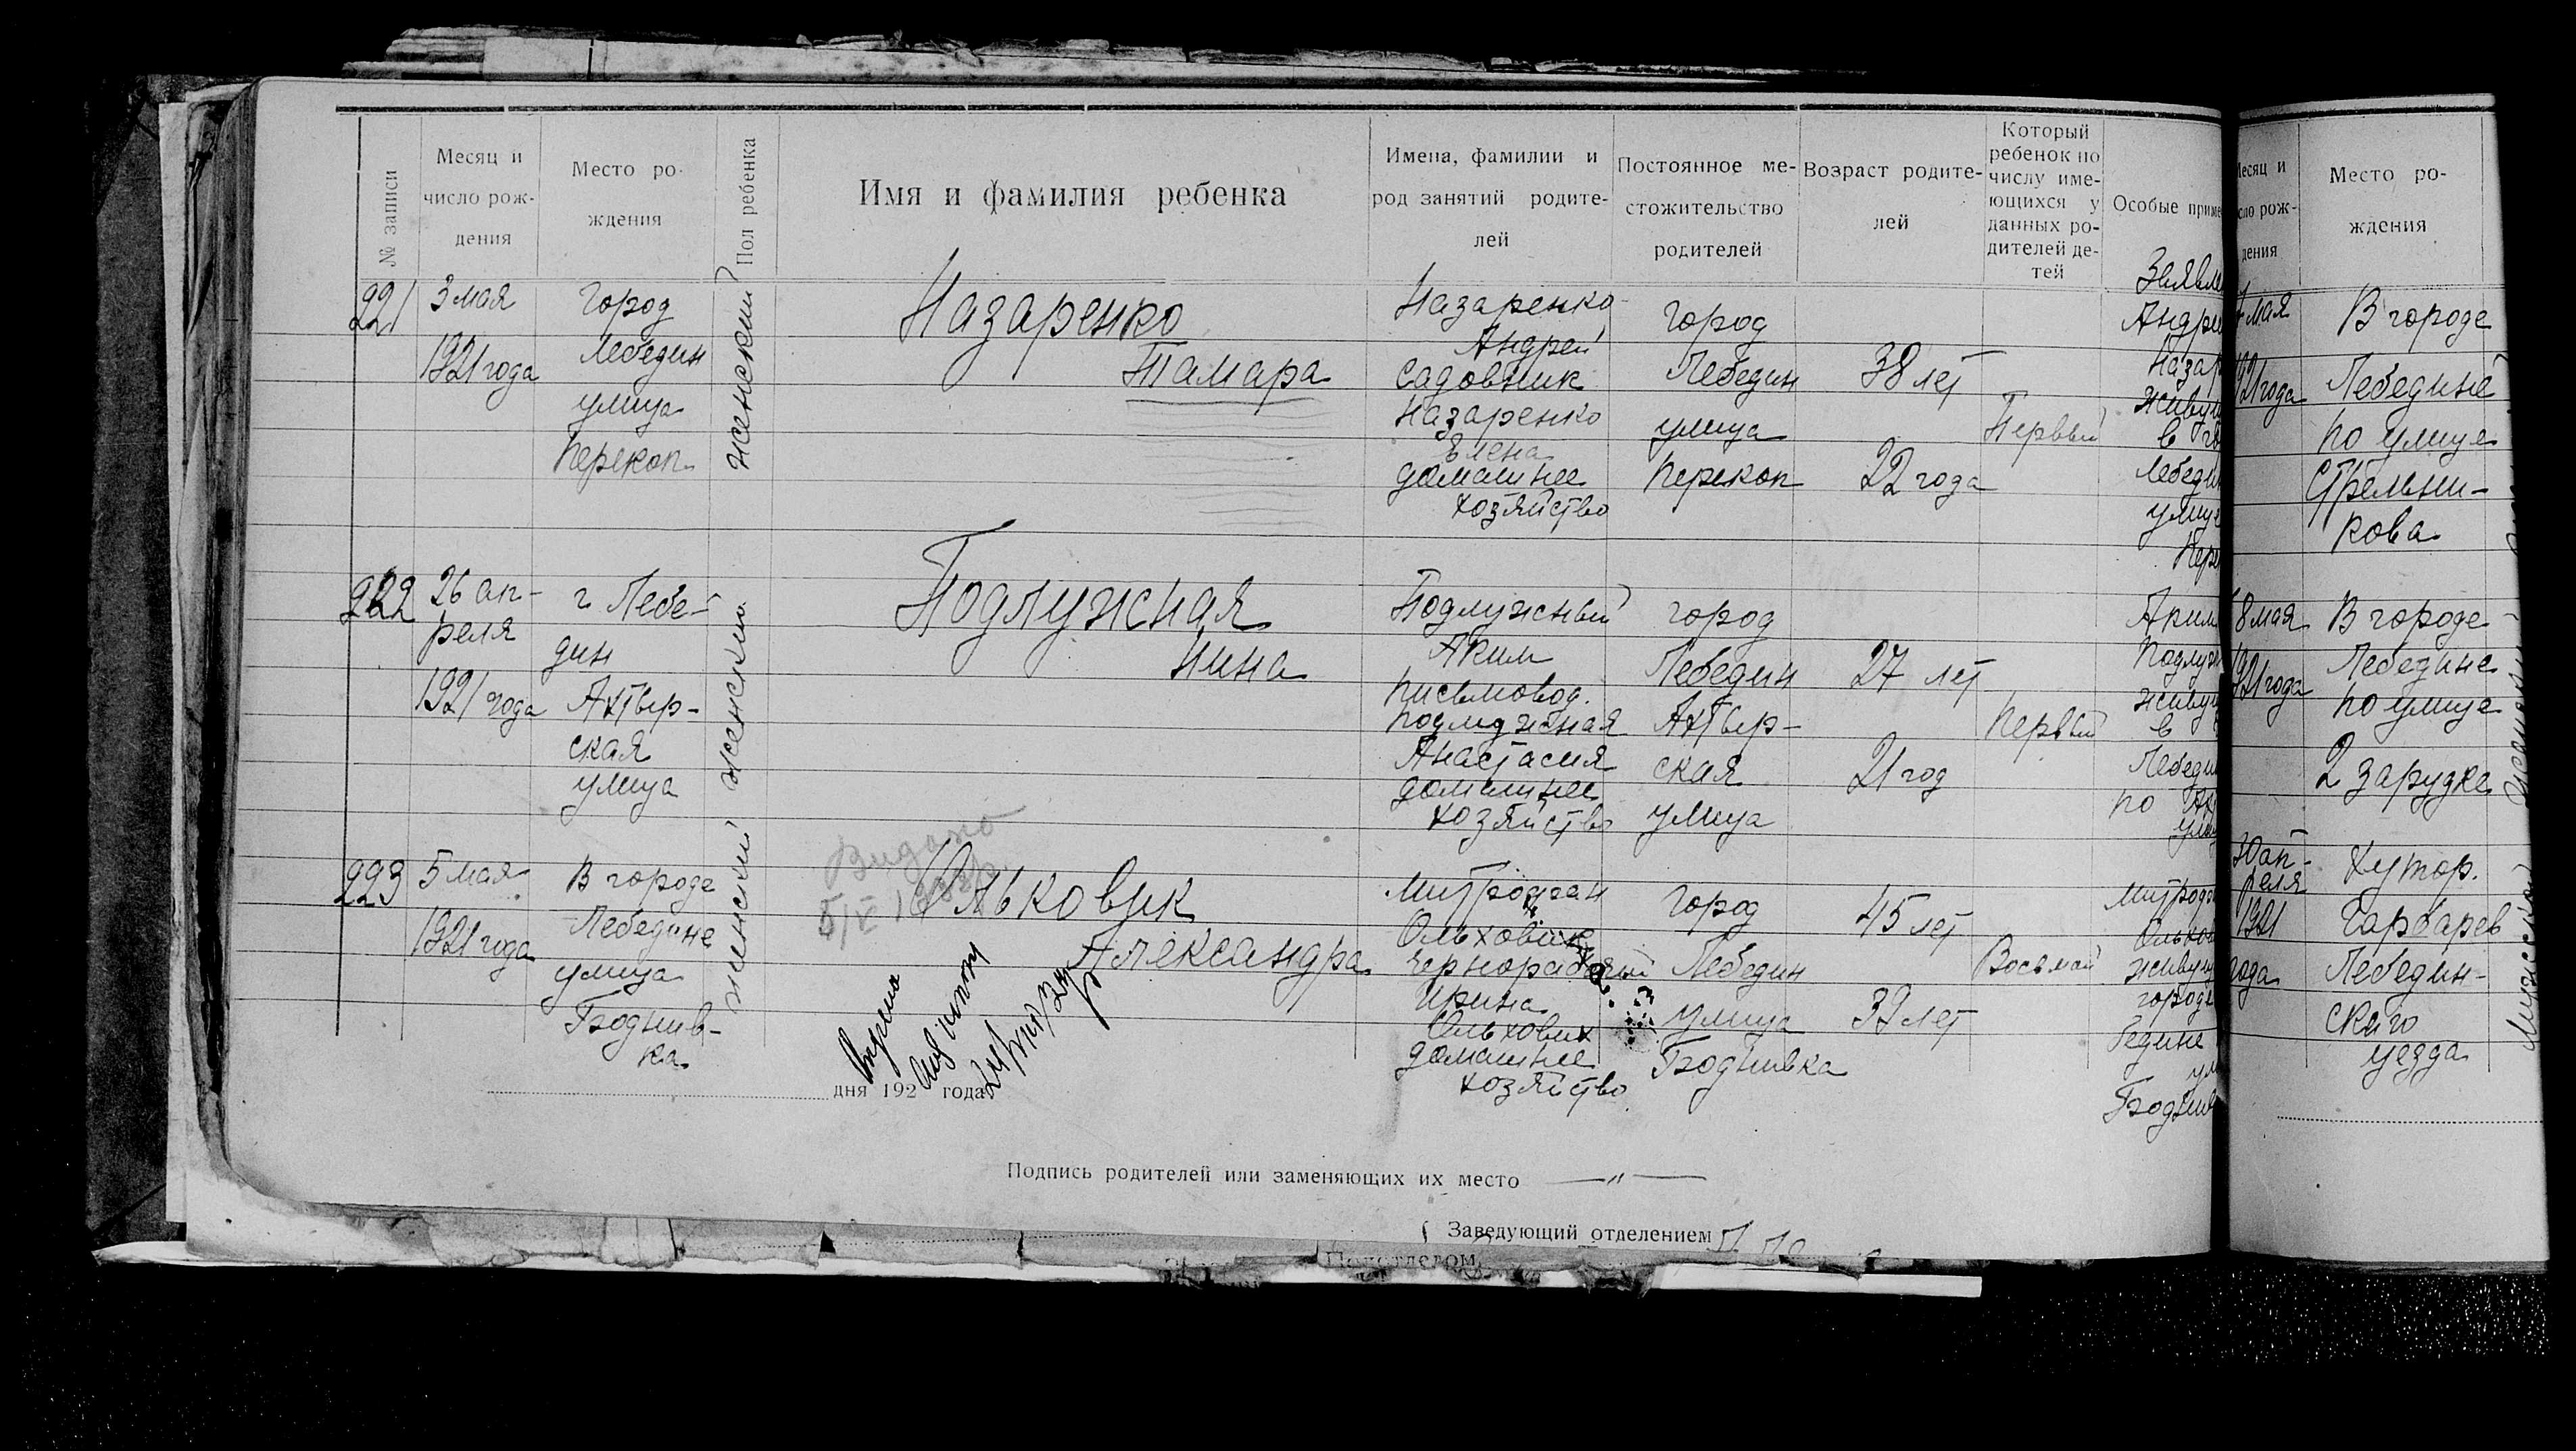 № записи
Месяц и
число рож-
дения
Место ро-
ждения
Пол ребенка
Имя и фамилия ребенка
Имена, фамилии и
род занятий родите-
лей
Постоянное ме-
стожительство
родителей
Возраст родите-
лей
Который
ребенок по
числу име-
ющихся у
данных ро-
дителей де-
тей
Особые приме
221
3 мая
1921 года
Город
Лебедин
улица
Перекоп
женский
Назаренко
Тамара
Назаренко
Андрей
садовник
Назаренко
Елена
домашнее
хозяйство
город
Лебедин
улица
Перекоп
38 лет
22 года
Первый
Заявле
Андре
Назар
живущ
в го
Лебеди
улице
Пере
222
26 ап-
реля
1921 года
г Лебе-
дин
Ахтыр-
ская
улица
женский
Подлужная
Нина
Подлужный
Аким
письмовод.
Подлужная
Анастасия
домашнее
хозяйство
город
Лебедин
Ахтыр-
ская
улица
27 лет
21 год
Первый
Аким
Подлуж
живущ
в
Лебеди
по Ах
ули
223
5 мая
1921 года
В городе
Лебедине
улица
женский
Видано
Ольховик
Александра
Митрофан
Ольховик
чернорабочий
Ирина
Ольховик
домашнее
хозяйство
город
Лебедин
улица
45 лет
39 лет
Восьмой
Митроф
Ольхов
живущ
городе
бедине
ул
дня 192 года
Подпись родителей или заменяющих их место —„—
Заведующий отделением
Подотделом
Месяц и
сло рож-
дения
Место ро-
ждения
мая
1921 года
В городе
Лебедине
по улице
Стрельни-
кова
8 мая
1921 года
В городе
Лебедине
по улице
2 зарудка
30 ап-
реля
1921
года
Хутор.
Гарбарев
Лебедин-
скаго
уезда
Мужской